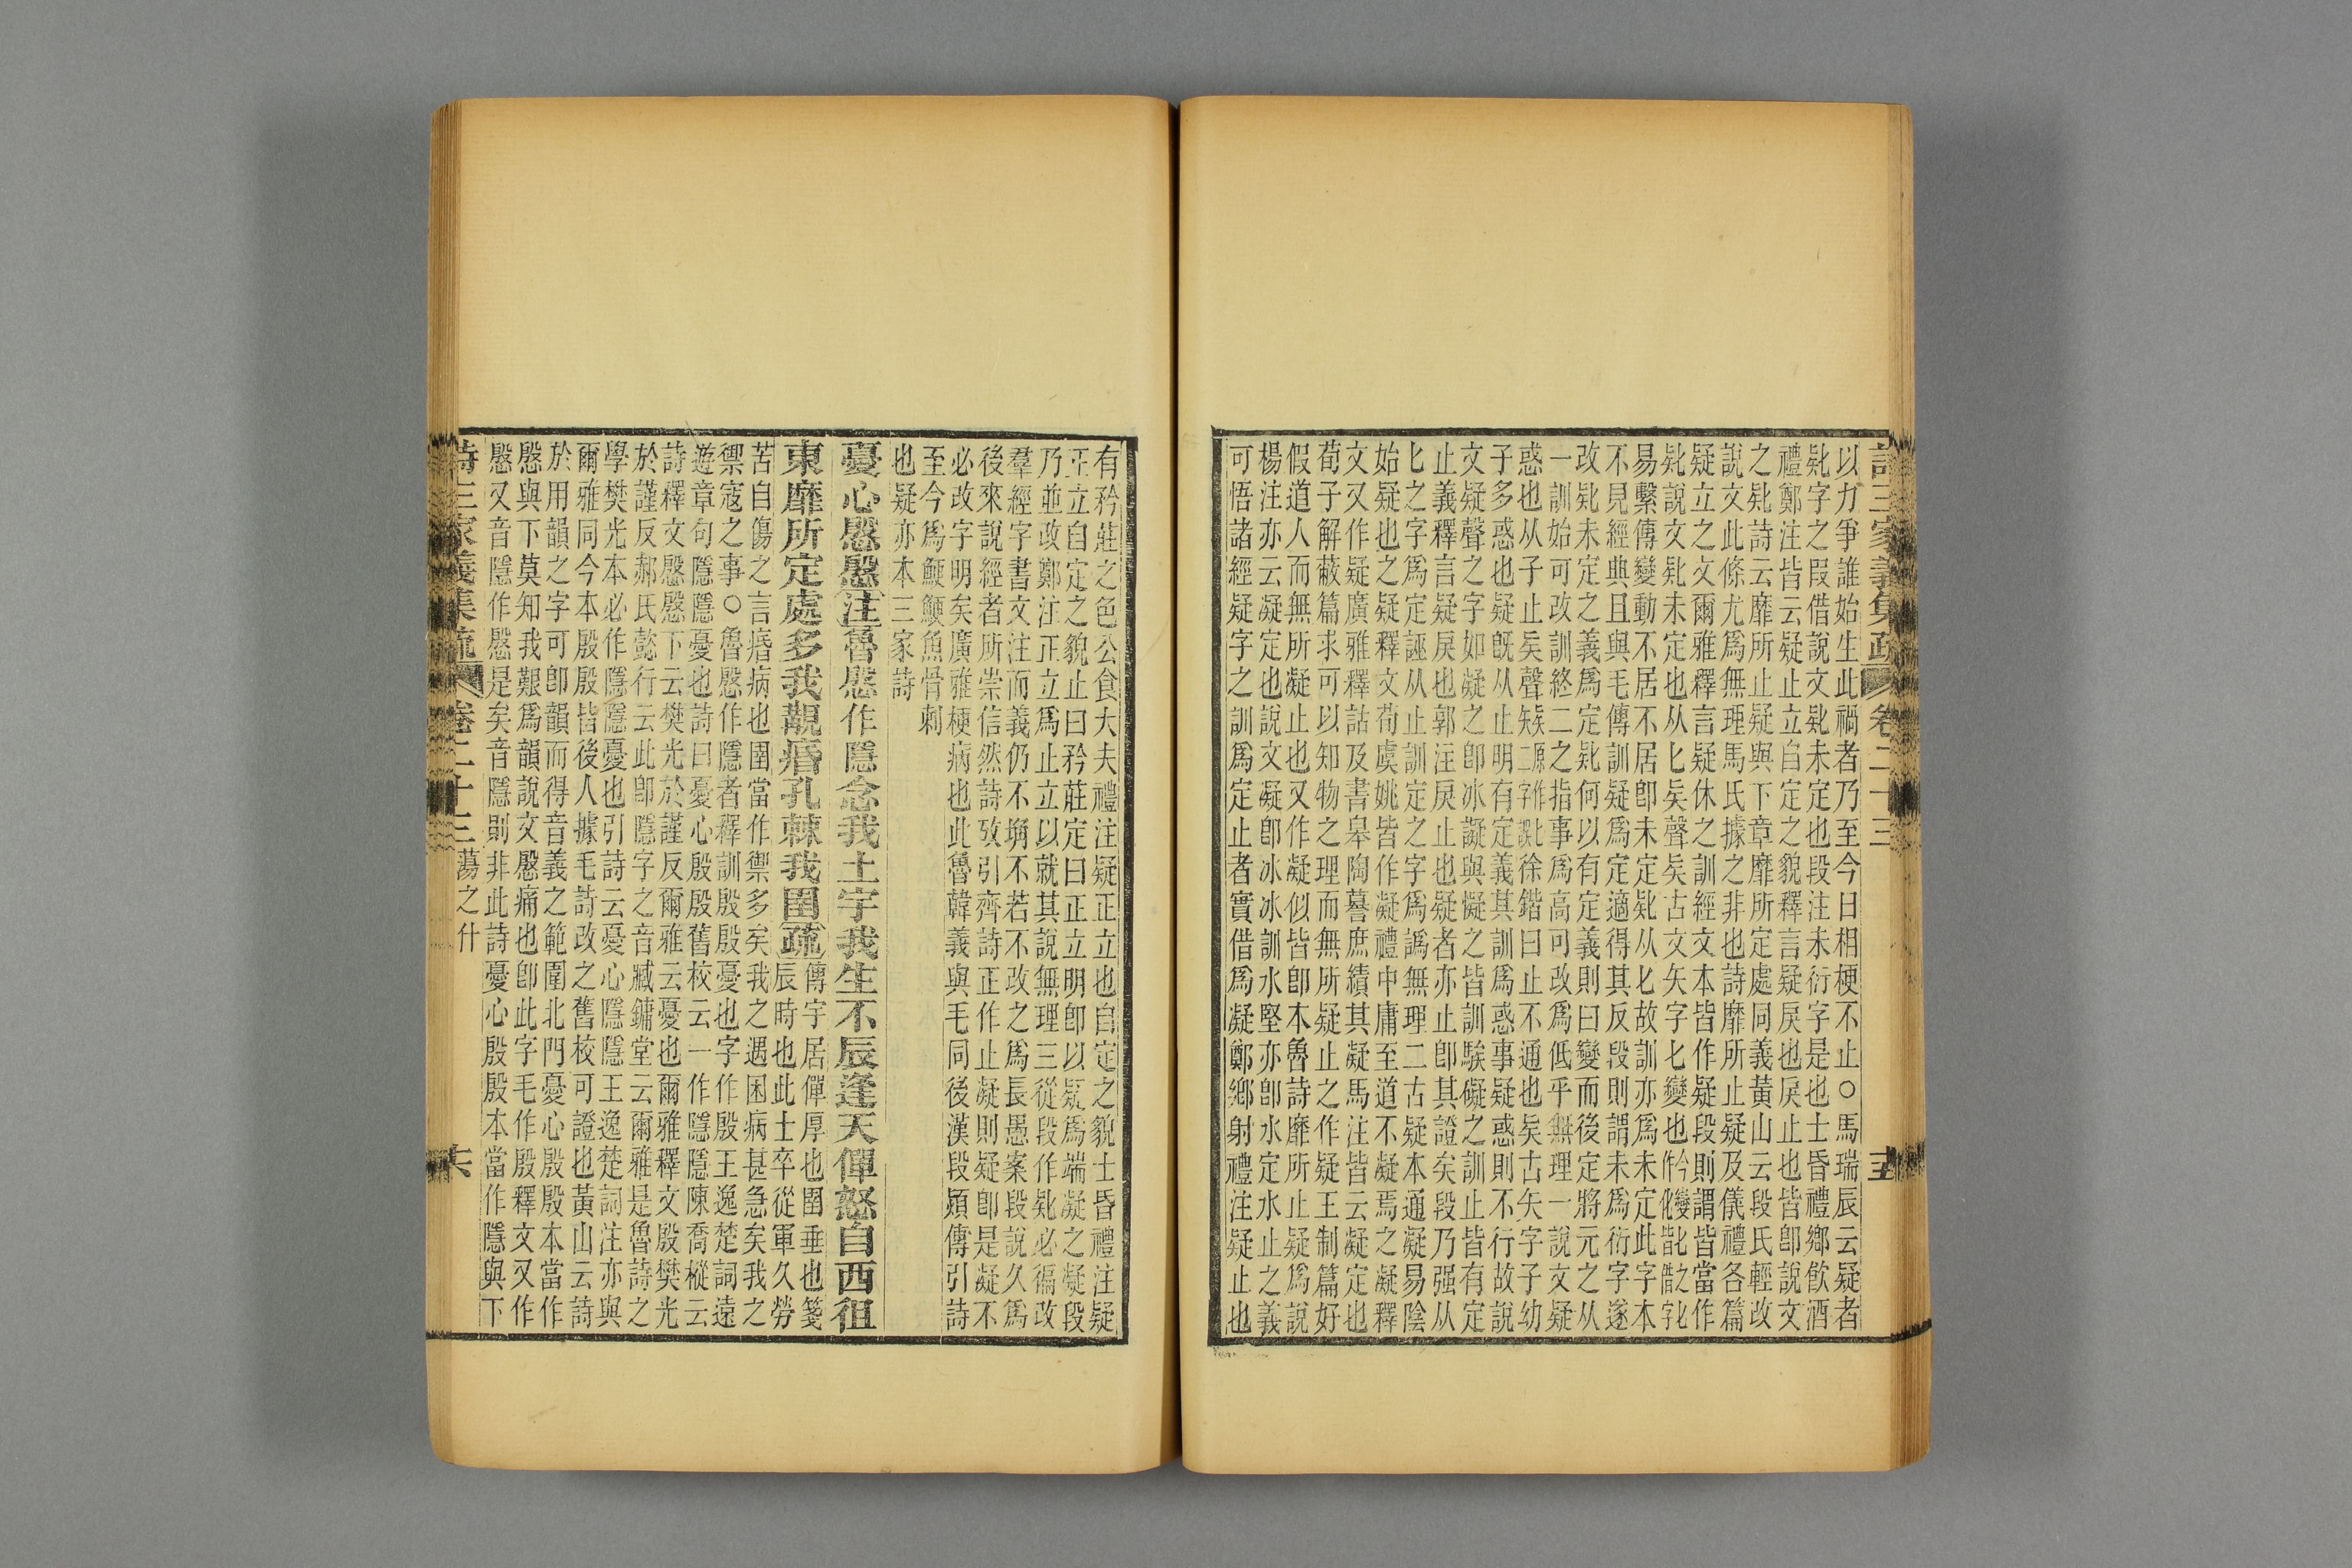 詩三家義集疏 卷二十三 十五
以力爭誰始生此禍者乃至今日相梗不止○馬瑞辰云疑者
𠤕字之叚借說文𠤕未定也段注未衍字是也士昏禮鄉飮酒
禮鄭注皆云疑止立自定之貌釋言疑戾也戾止也皆卽說文
之𠤕詩云靡所止疑與下章靡所定處同義黃山云段氏輕改
說文此條尤爲無理馬氏據之非也詩靡所止疑及儀禮各篇
疑立之文爾雅釋言疑休之訓經文本皆作疑段則謂皆當作
𠤕說文𠤕未定也从匕矣聲矣古文矢字匕變也
易繫傳變動不居不居卽未定𠤕从匕故訓亦爲未定此字本
不見經典且與毛傳訓疑爲定適得其反段則謂未爲衍字遂
改𠤕未定之義爲定𠤕何以有定義則曰變而後定將元之从
一訓始可改訓終二之指事爲高可改爲低平無理一說文疑
惑也从子止矣聲徐鍇曰止不通也矣古矢字子幼
子多惑也疑旣从止明有定義其訓爲惑事疑惑則不行故說
文疑聲之字如凝之卽冰譺與儗之皆訓騃礙之訓止皆有定
止義釋言疑戾也郭注戾止也疑者亦止卽其證矣段乃强从
匕之字爲定誣从止訓定之字爲譌無理二古疑本通凝易陰
始疑也之疑釋文荀虞姚皆作凝禮中庸至道不凝焉之凝釋
文又作疑廣雅釋詁及書皋陶謩庶績其凝馬注皆云凝定也
荀子解蔽篇求可以知物之理而無所疑止之作疑王制篇好
假道人而無所凝止也又作凝似皆卽本魯詩靡所止疑爲說
楊注亦云凝定也說文凝卽冰冰訓水堅亦卽水定水止之義
可悟諸經疑字之訓爲定止者實借爲凝鄭鄉射禮注疑止也
有矜莊之色公食大夫禮注疑正立也自定之貌士昏禮注疑
正立自定之貌止曰矜莊定曰正立明卽以疑爲端凝之凝段
乃並改鄭注正立爲止立以就其說無理三從段作𠤕必徧改
羣經字書文注而義仍不塙不若不改之爲長愚案段說久爲
後來說經者所崇信然詩攷引齊詩正作止凝則疑卽是凝不
必改字明矣廣雅梗病也此魯韓義與毛同後漢段熲傳引詩
至今爲鯁鯁魚骨刺
也疑亦本三家詩
憂心慇慇注魯慇作隱念我土宇我生不辰逢天僤怒自西徂
東靡所定處多我覯痻孔棘我圉疏
傳宇居僤厚也圉垂也箋
辰時也此士卒從軍久勞
苦自傷之言痻病也圉當作禦多矣我之遇困病甚急矣我之
禦寇之事○魯慇作隱者釋訓殷殷憂也字作殷王逸楚詞遠
遊章句隱隱憂也詩曰憂心殷殷舊校云一作隱隱陳喬樅云
詩釋文慇慇下云樊光於謹反爾雅云憂也爾雅釋文殷樊光
於謹反郝氏懿行云此卽隱字之音臧鏞堂云爾雅是魯詩之
學樊光本必作隱隱憂也引詩云憂心隱隱王逸楚詞注亦與
爾雅同今本殷殷皆後人據毛詩改之舊校可證也黃山云詩
於用韻之字可卽韻而得音義之範圍北門憂心殷殷本當作
慇與下莫知我艱爲韻說文慇痛也卽此字毛作殷釋文又作
慇又音隱作慇是矣音隱則非此詩憂心殷殷本當作隱與下
詩三家義集疏 卷二十三 蕩之什 十六